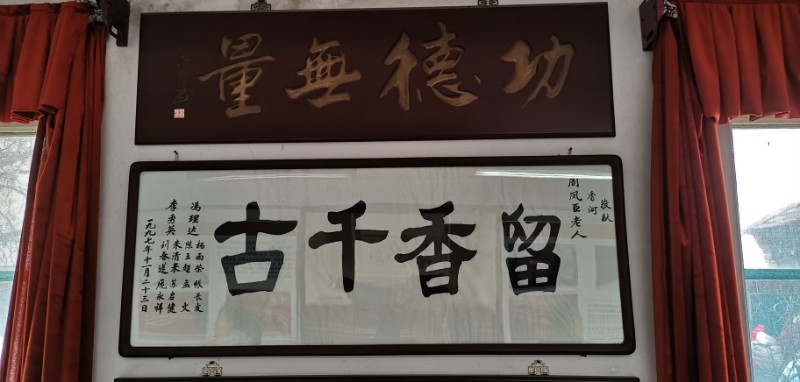 功德無量
敬献
香河
周凤臣老人
留香千古
冯理达
李秀英
杨雨荣 张长友
陈玉超 孟文
朱清来 苏君健
刘春莲 庞永祥
一九九七年十一月二十三日